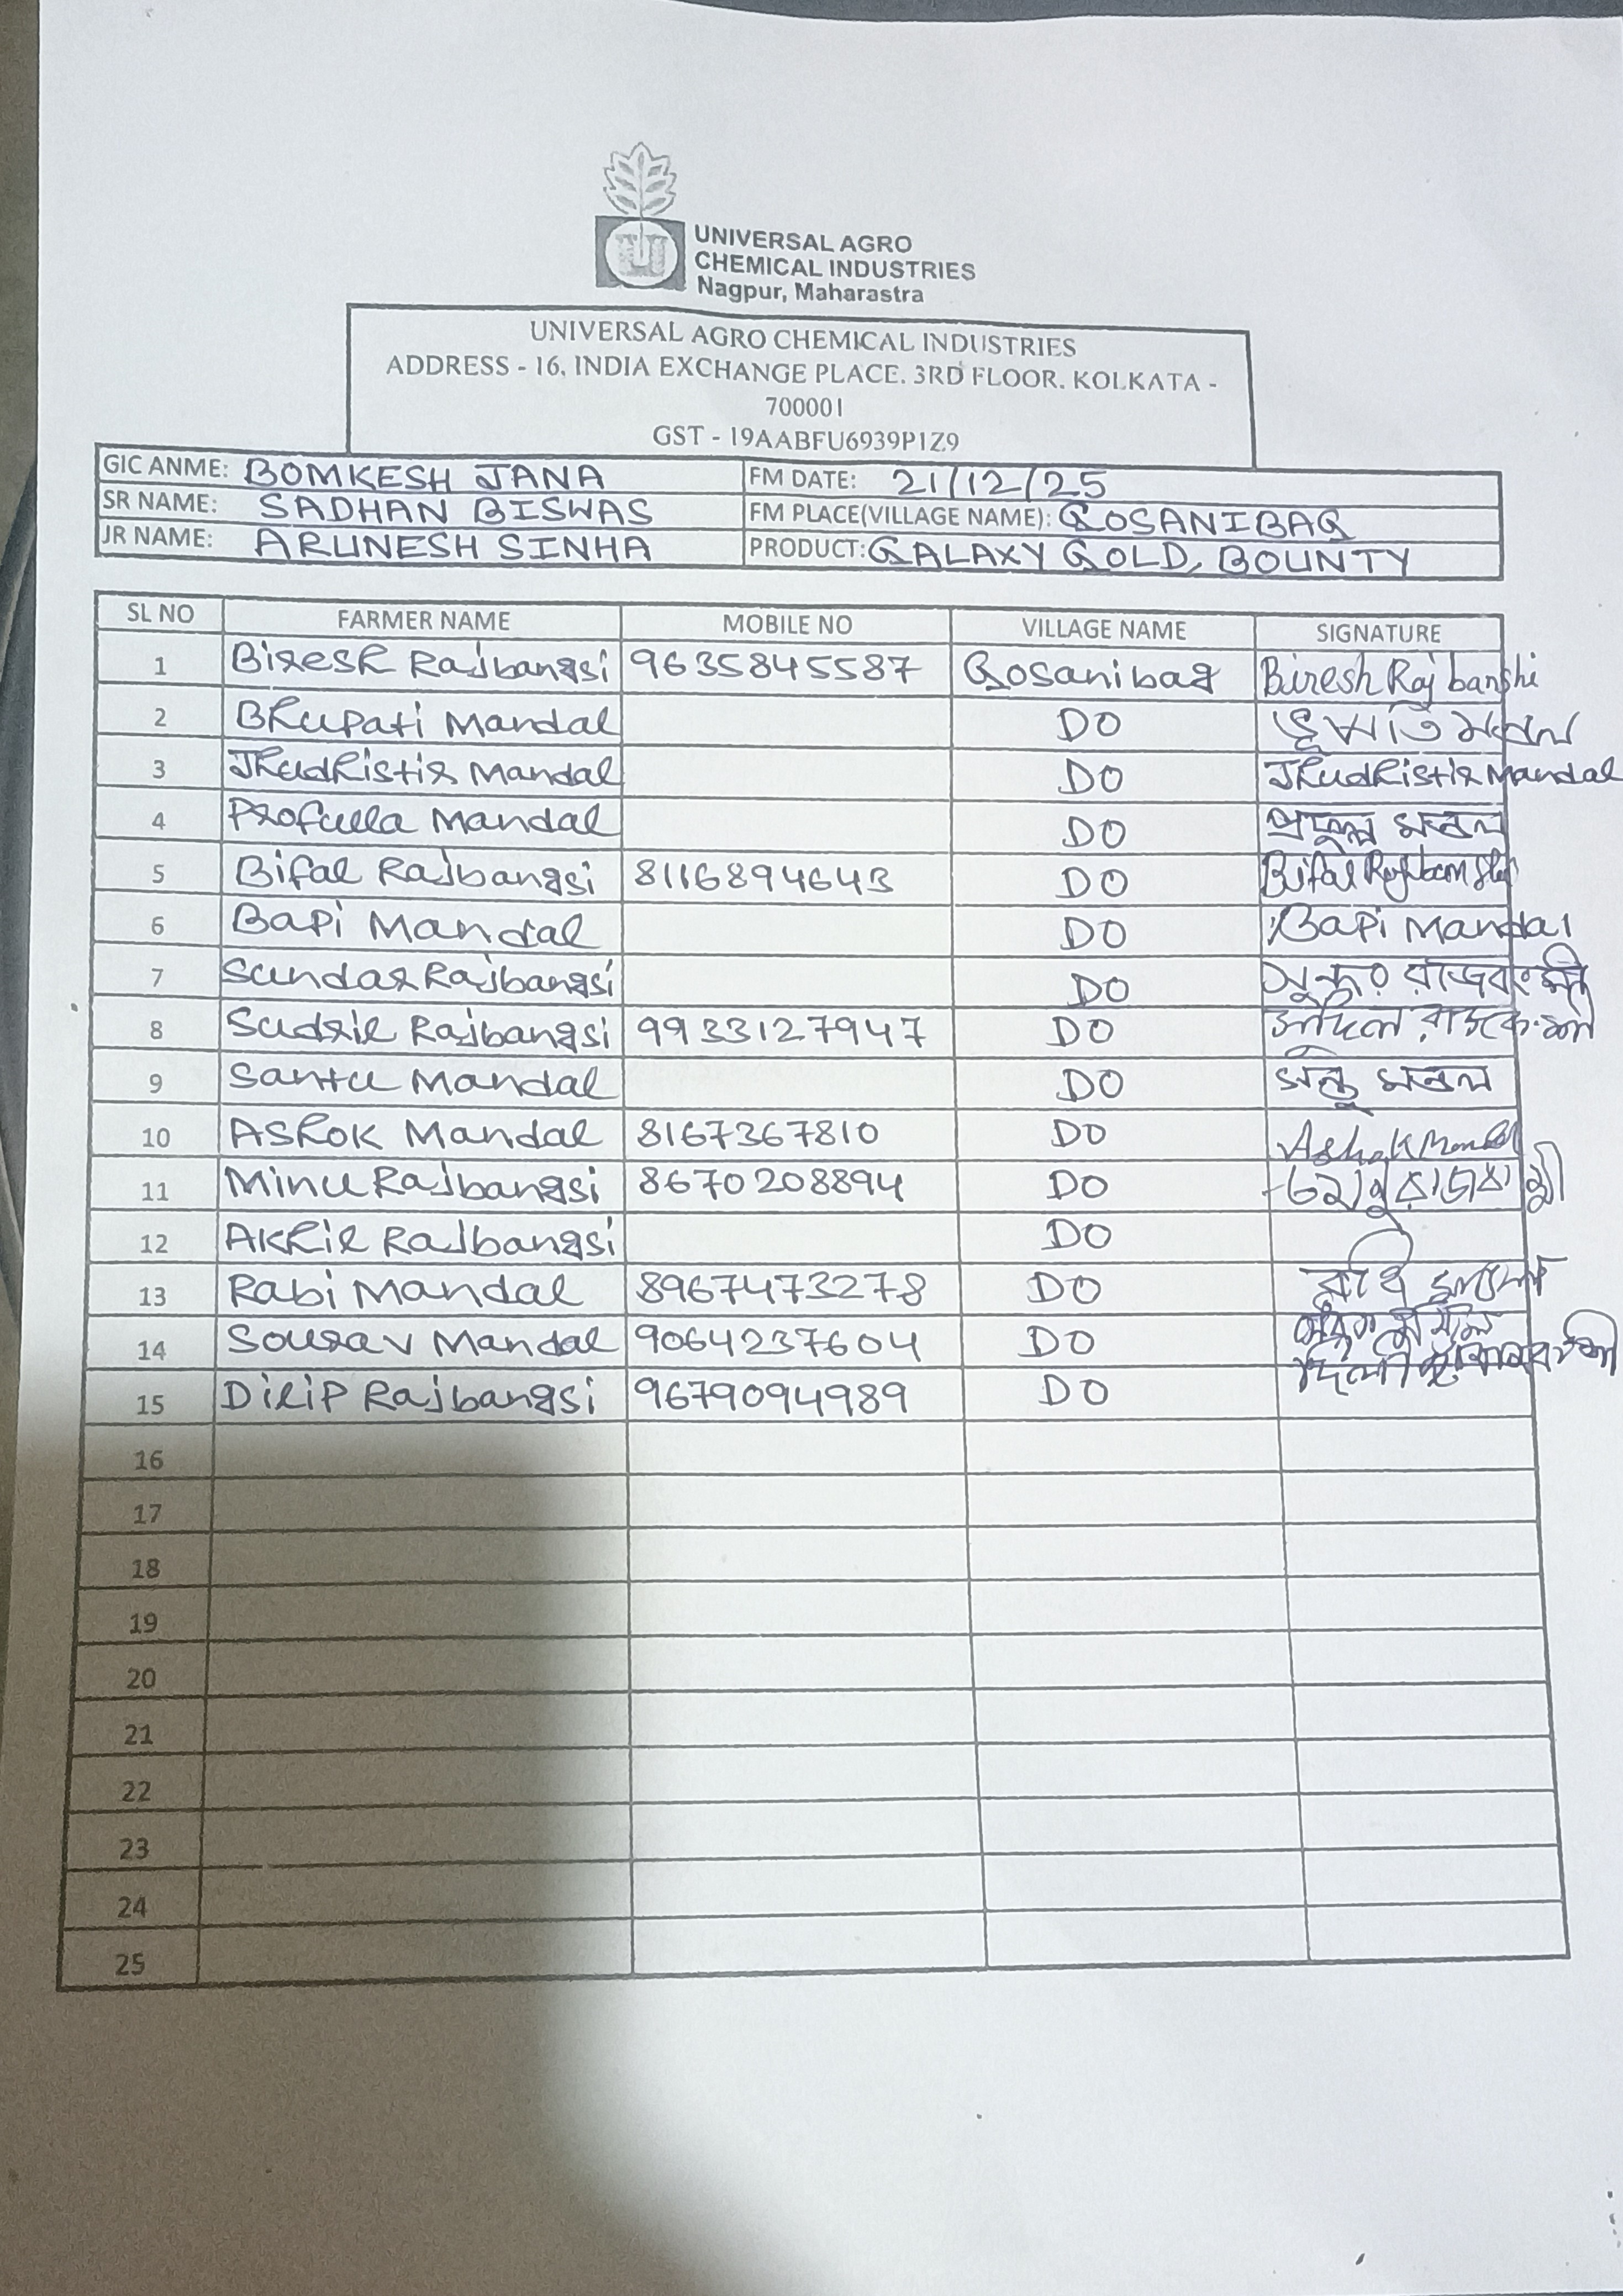 UNIVERSAL AGRO
CHEMICAL INDUSTRIES
Nagpur, Maharastra
UNIVERSAL AGRO CHEMICAL INDUSTRIES
ADDRESS - 16, INDIA EXCHANGE PLACE, 3RD FLOOR, KOLKATA -
700001
GST - 19AABFU6939P1Z9
GIC ANME: BOMKESH JANA FM DATE: 21/12/25
SR NAME: SADHAN BISWAS FM PLACE(VILLAGE NAME): GOSANIBAG
JR NAME: ARUNESH SINHA PRODUCT: GALAXY GOLD, BOUNTY
SL NO FARMER NAME MOBILE NO VILLAGE NAME SIGNATURE
1 Biresh Rajbangsi 9635845587 Gosanibag Biresh Rajbanshi
2 Bhupati Mandal DO ভূপতি মণ্ডল
3 Jhudhistir Mandal DO Jhudhistir Mandal
4 Profulla Mandal DO প্রফুল্ল মন্ডল
5 Bifal Rajbangsi 8116894643 DO Bifal
6 Bapi Mandal DO Bapi Mandal
7 Sundar Rajbangsi DO সুন্দর রাজবংশী
8 Sudril Rajbangsi 9933127947 DO
9 Santu Mandal DO সন্তু মন্ডল
10 Ashok Mandal 8167367810 DO Ashok Mandal
11 Minu Rajbangsi 8670208894 DO
12 Akhil Rajbangsi DO
13 Rabi Mandal 8967473278 DO রবি
14 Sourav Mandal 9064237604 DO
15 Dilip Rajbangsi 9679094989 DO
16
17
18
19
20
21
22
23
24
25